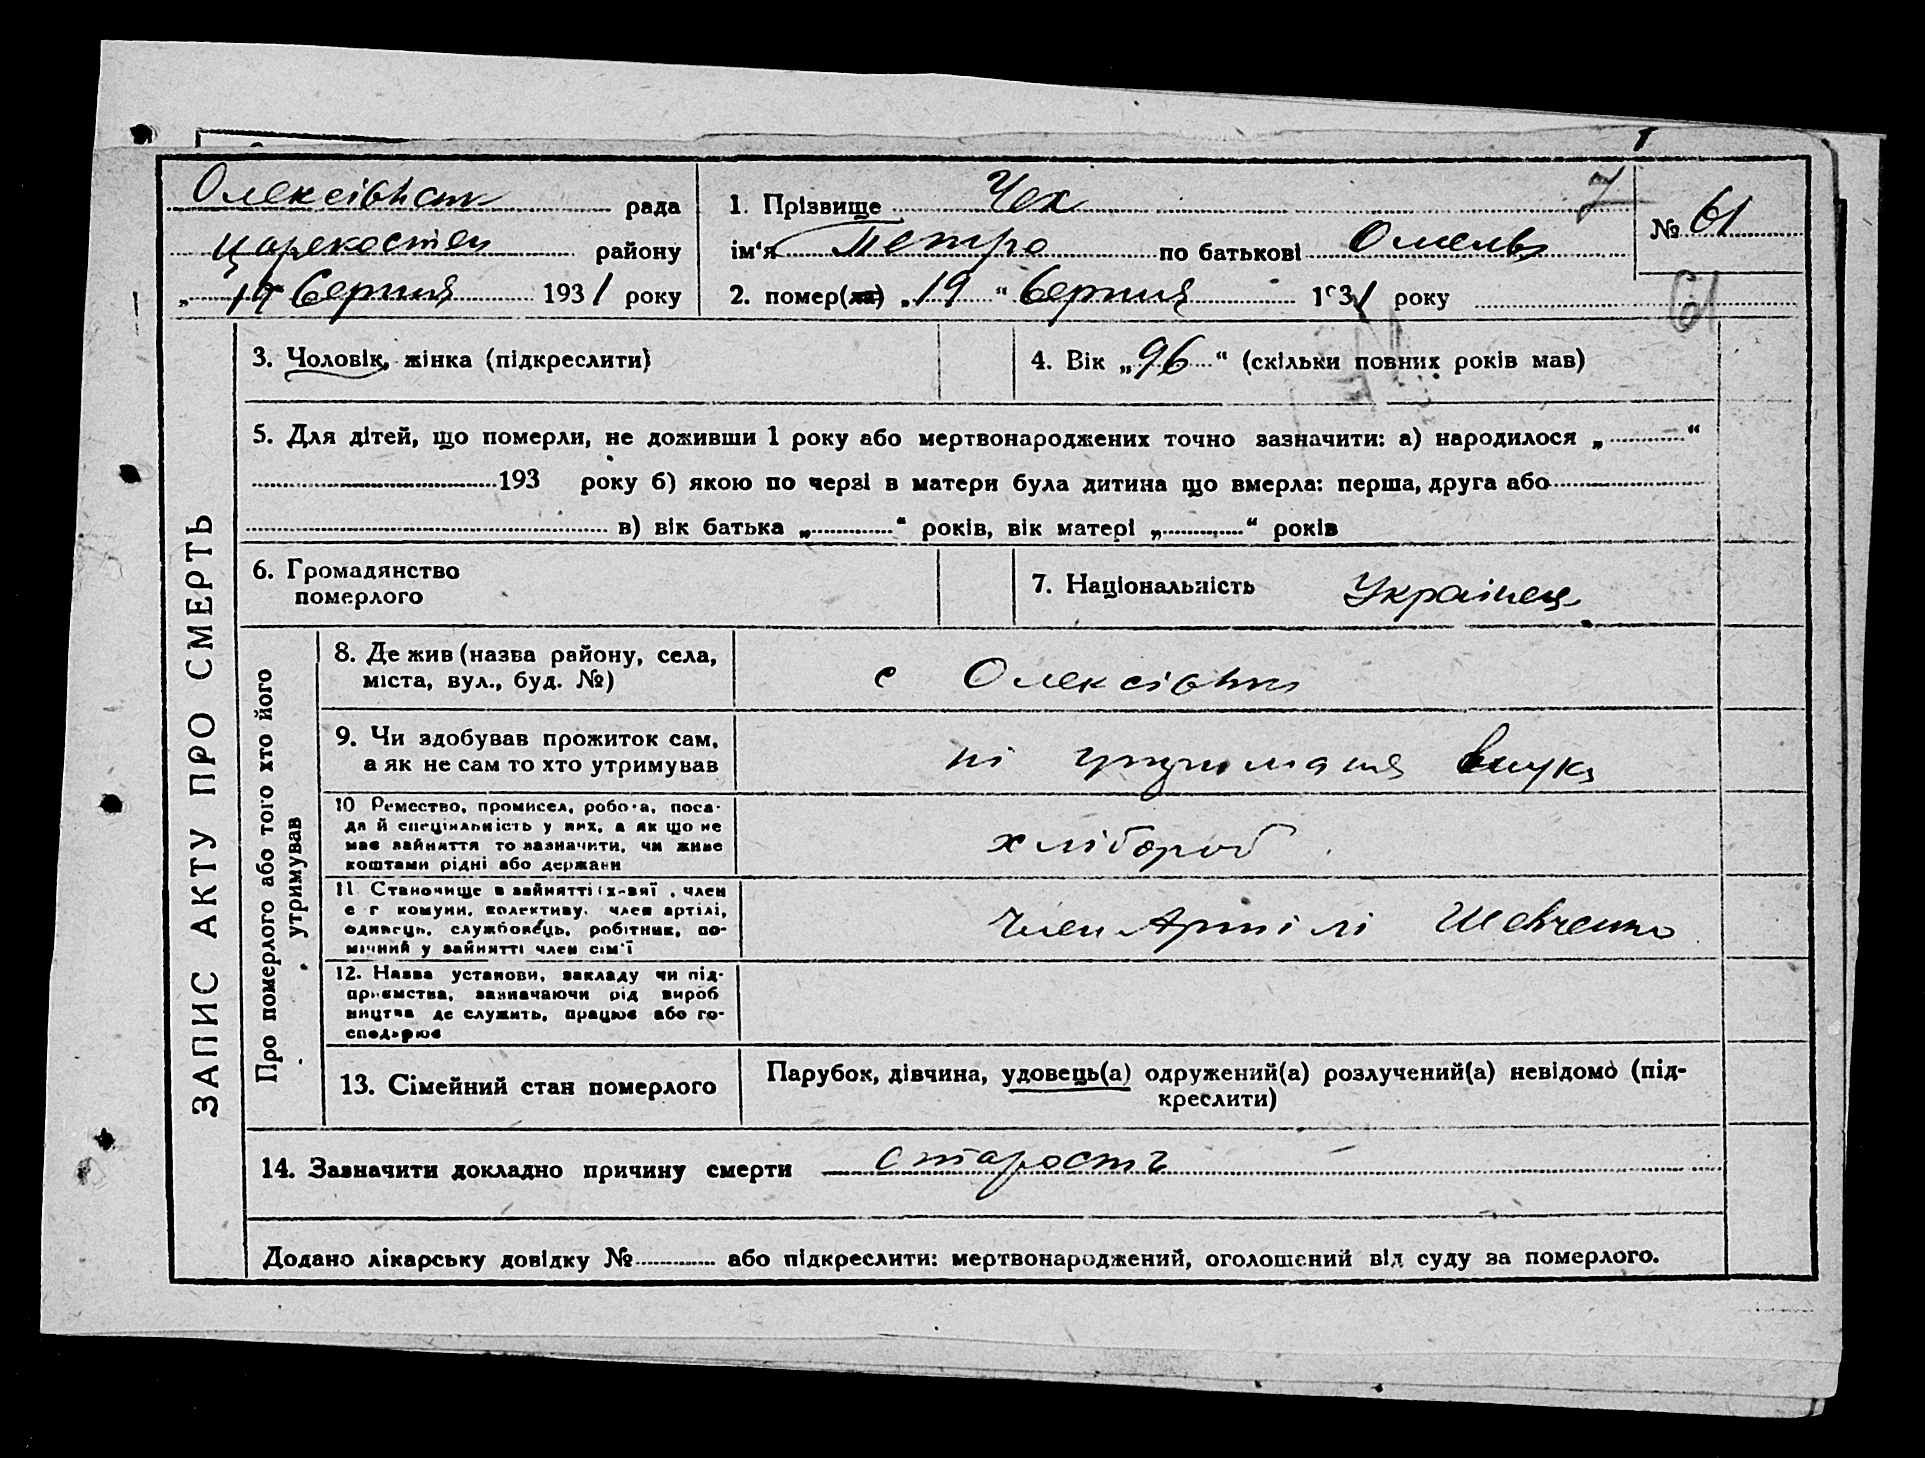 Олексіівськ рада
Царекостен району
„ 19 Серпня 1931 року
1. Прізвище Чех
ім'я Петро по батькові Омельв
2. помер(ла) „ 19 " Серпня 1931 року
7
№ 61
61
ЗАПИС АКТУ ПРО СМЕРТЬ
3. Чоловік, жінка (підкреслити)
4. Вік „ 96 " (скільки повних років мав)
5. Для дітей, що померли, не доживши 1 року або мертвонароджених точно зазначити: а) народилося „ "
193 року б) якою по черзі в матери була дитина що вмерла: перша, друга або
в) вік батька „ " років, вік матері „ " років
6. Громадянство
померлого
7. Національність Українець
Про померлого або того хто його
утримував
8. Де жив (назва району, села,
міста, вул., буд. №)
с Олексіівки
9. Чи здобував прожиток сам,
а як не сам то хто утримував
ні внука
10 Ремество, промисел, робота, поса-
да й спеціяльність у них, а як що не
має зайняття то зазначити, чи живе
коштами рідні або держави
хлібороб
11. Становище в зайнятті: х-зяї , член
с г комуни, колективу, член артілі,
одинець, службовець, робітник, по-
мічний у зайнятті член сім'ї
Член Артілі Шевченко
12. Назва установи, закладу чи під-
приємства, зазначаючи рід вироб
ництва де служить, працює або го-
сподарює
13. Сімейний стан померлого
Парубок, дівчина, удовець(а) одружений(а) розлучений(а) невідомо (під-
креслити)
14. Зазначити докладно причину смерти старость
Додано лікарську довідку № або підкреслити: мертвонароджений, оголошений від суду за померлого.